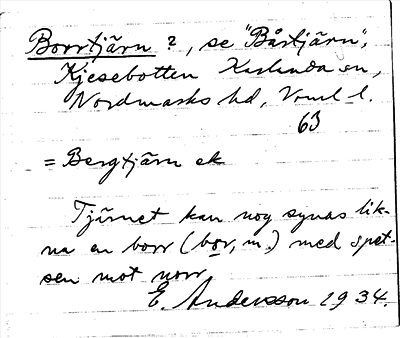 Borrtjärn ?, se "Bårtjärn",
Kjesebotten Karlanda sn,
Nordmarks hd, Vrml. l.
63
= Bergtjärn ek
Tjärnet kan nog synas lik-
na en borr (bor, m.) med spet-
sen mot norr
E. Andersson 1934.